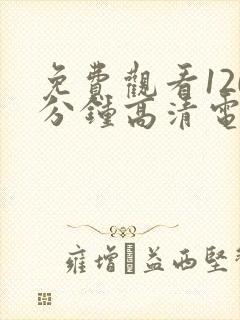 免費觀看120
分鐘高清電
雍增·益西堅